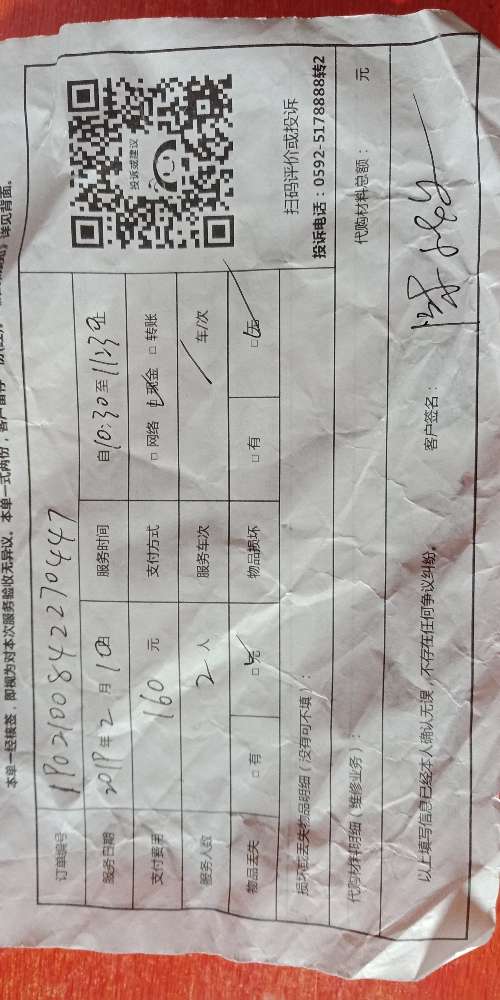 本单一经接签，即视为对本次服务验收无异议。本单一式两份，客户留存一份
详见背面。
订单编号 19021008422270447
投诉或建议
服务日期 2019年2月10日 服务时间 自10:30至11:39止
支付费用 160元 支付方式 □ 网络 □ 现金 □ 转账
服务人数 2人 服务车次 / 车/次
物品丢失 □ 有 □ 无 物品损坏 □ 有 □ 无
扫码评价或投诉
投诉电话：0592-5178888转2
损坏或丢失物品明细（没有可不填）：
代购材料明细（维修业务）： 代购材料总额： 元
以上填写信息已经本人确认无误，不存在任何争议纠纷。 客户签名：